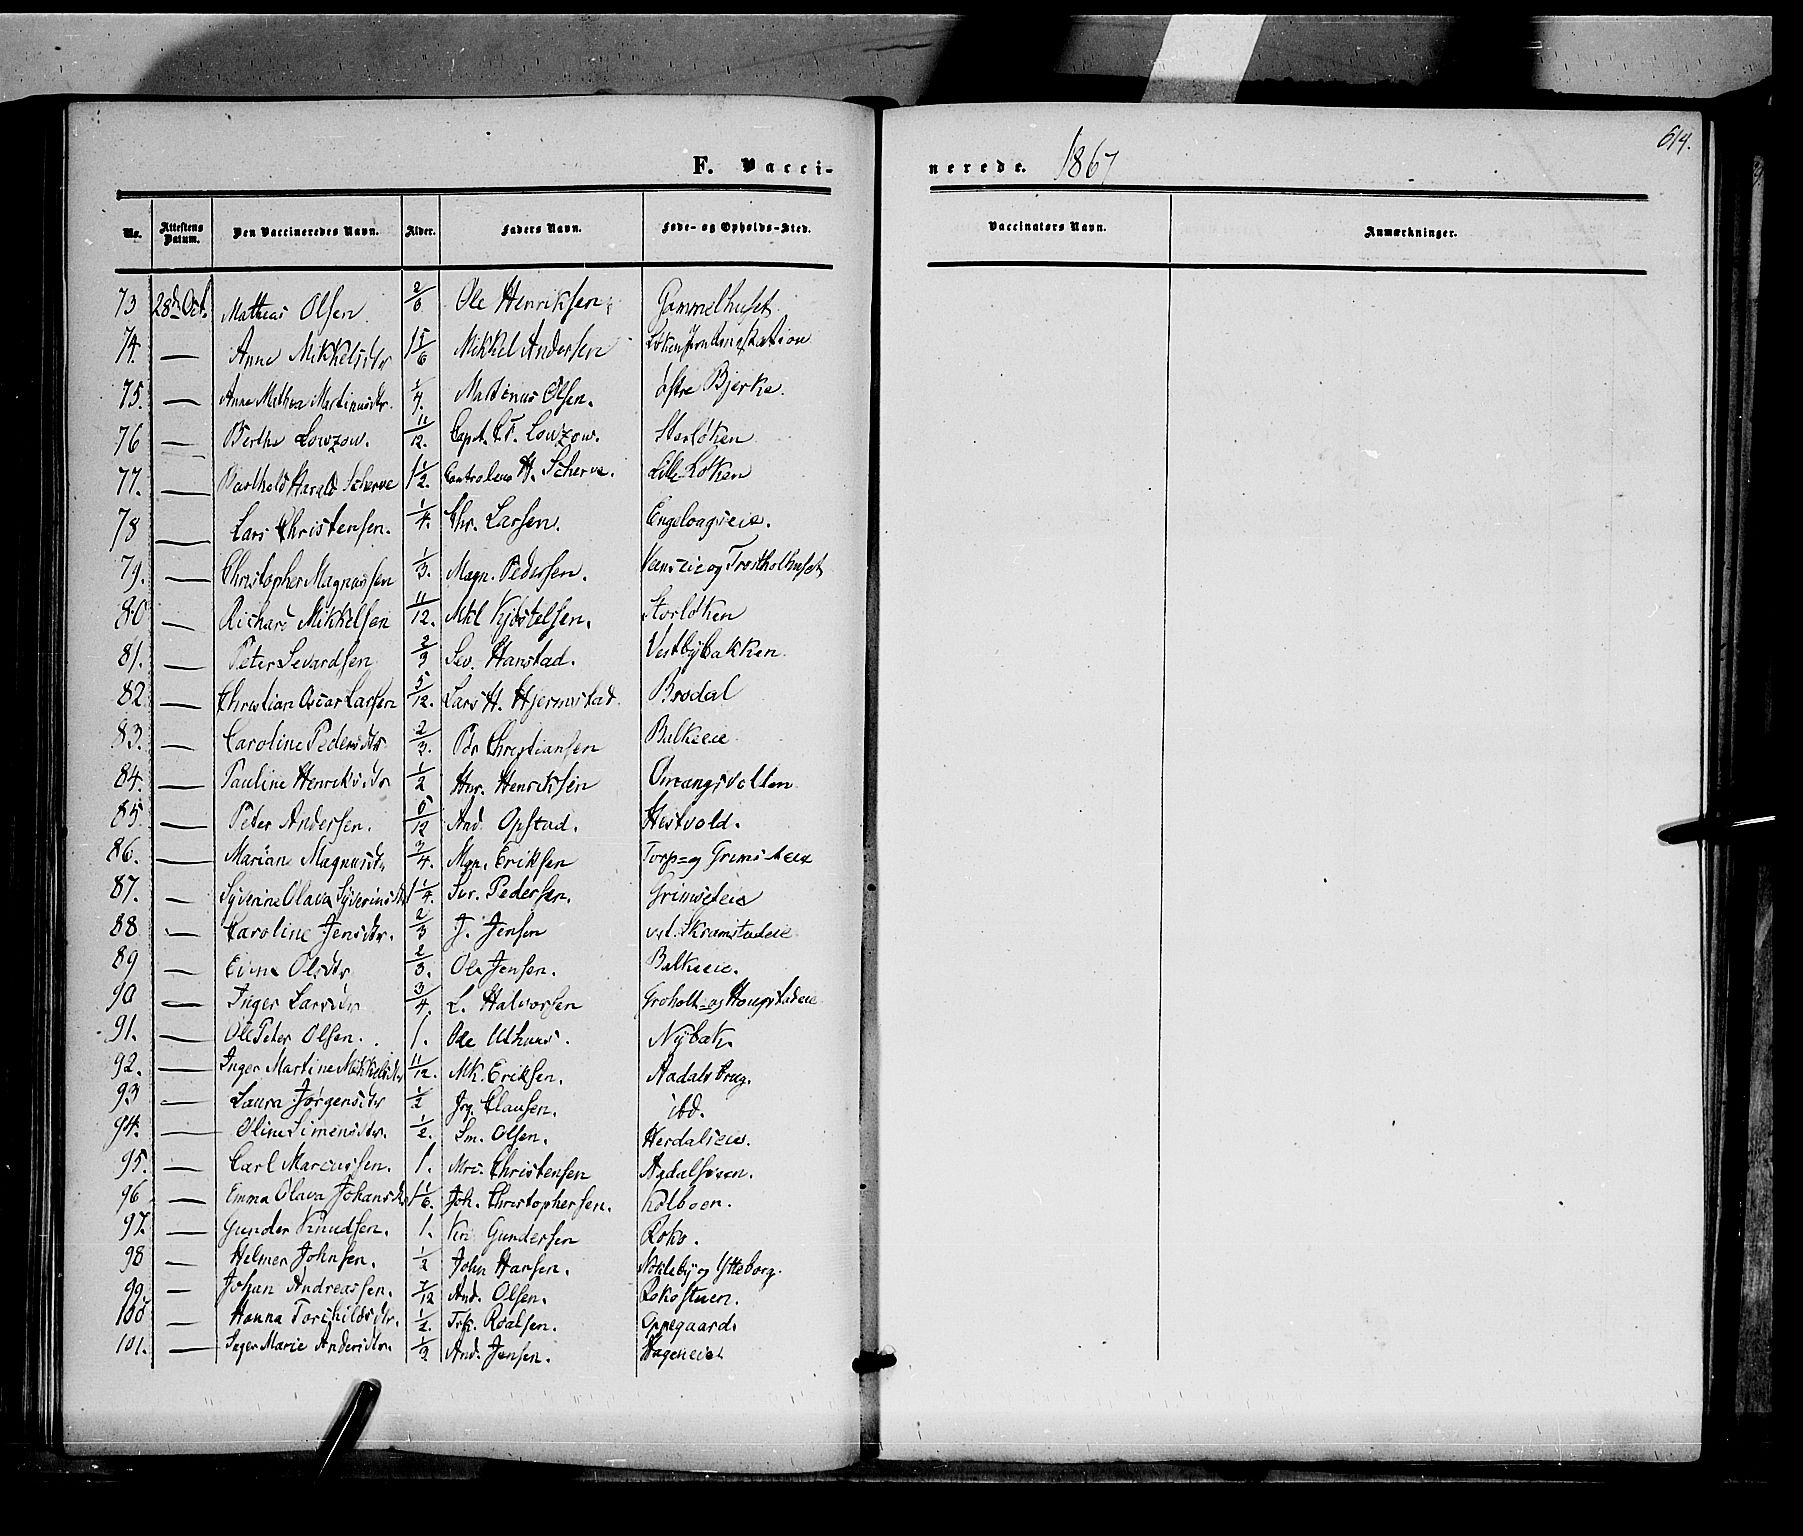 614.
F. Vaccinerede. 1867
No. Attestens Datum. Den Vaccineredes Navn. Alder. Faders Navn. Føde- og Opholds-Sted. Vaccinators Navn. Anmærkninger.
73 28de Oct. Mathias Olsen 2/3 Ole Henriksen Gammelhuset.
74. — Anne Mikkelsdtr 1 5/6 Mikkel Andersen
75. — Anne Mathea Martinusdtr. 1/4. Martinus Olsen. østre Bjerke.
76 — Berthe Lowzow. 11/12. Capt. Lowzow. Storløken
77. — Barthold Harald Scherve 1 1/2. Controleur H. Scherve. Lille Løken
78 — Lars Christensen. 1/4. Chr. Larsen. Engelaugseie.
79. — Christopher Magnussen 1/3. Magn. Pedersen.
80 — Richard Mikkelsen 11/12. Mkl Kjøstelsen. Storløken
81. — Peter Sevardsen 2/3 Sev. Hanstad. Vestbybakken.
82. — Christian Oscar Larsen 5/12. Lars H. Hjermstad. Brodal
83. — Caroline Pedersdtr 2/3. Pdr Christiansen Balkeeie
84. — Pauline Henriksdtr 1/2 Hnr. Henriksen Omangsvolden
85. — Peter Andersen. 5/12 And. Opstad. Hestvold.
86. — Mariane Magnusdtr 3/4. Mgn. Eriksen Torp- og Grimseteie
87. — Syverine Olava Syverinsdtr 1 1/4. Svr. Pedersen. Grimseteie
88 — Karoline Jensdtr. 2/3 J. Jensen vst. Skramstadeie
89 — Olsdtr 2/3. Ole Jensen. Balkeeie.
90 — Inger Larsdtr 3/4. L. Halvorsen Groholt- og Hougstadeie
91. — Ole Peter Olsen. 1. Ole Uthuus. Nybak.
92. — Inger Martine Mikkelsdtr 11/12. Mk. Eriksen. Aadals Brug.
93 — Laura Jørgensdtr 1/2 Jrg. Clausen. ibd.
94. — Oline Simensdtr. 1/2. Sm. Olsen. Herdalseie.
95. — Carl Marcussen. 1. Mrc. Christensen Aadalsveen.
96 — Emma Olava Johansdtr 1 1/6. Joh. Christophersen. Kolboen.
97. — Gunder Knudsen. 1. Kn. Gundersen Roko.
98 — Helmer Johnsen. 1/2 John Hansen. Nokleby og Ytteborg.
99. — Johan Andreassen. 7/12 And. Olsen. Rokostuen.
100 — Hanna Torkildsdtr. 1/2. Trk. Roalsen. Oppegaard.
101. — Inger Marie Andersdtr. 1/2 And. Jensen. Hageneiet